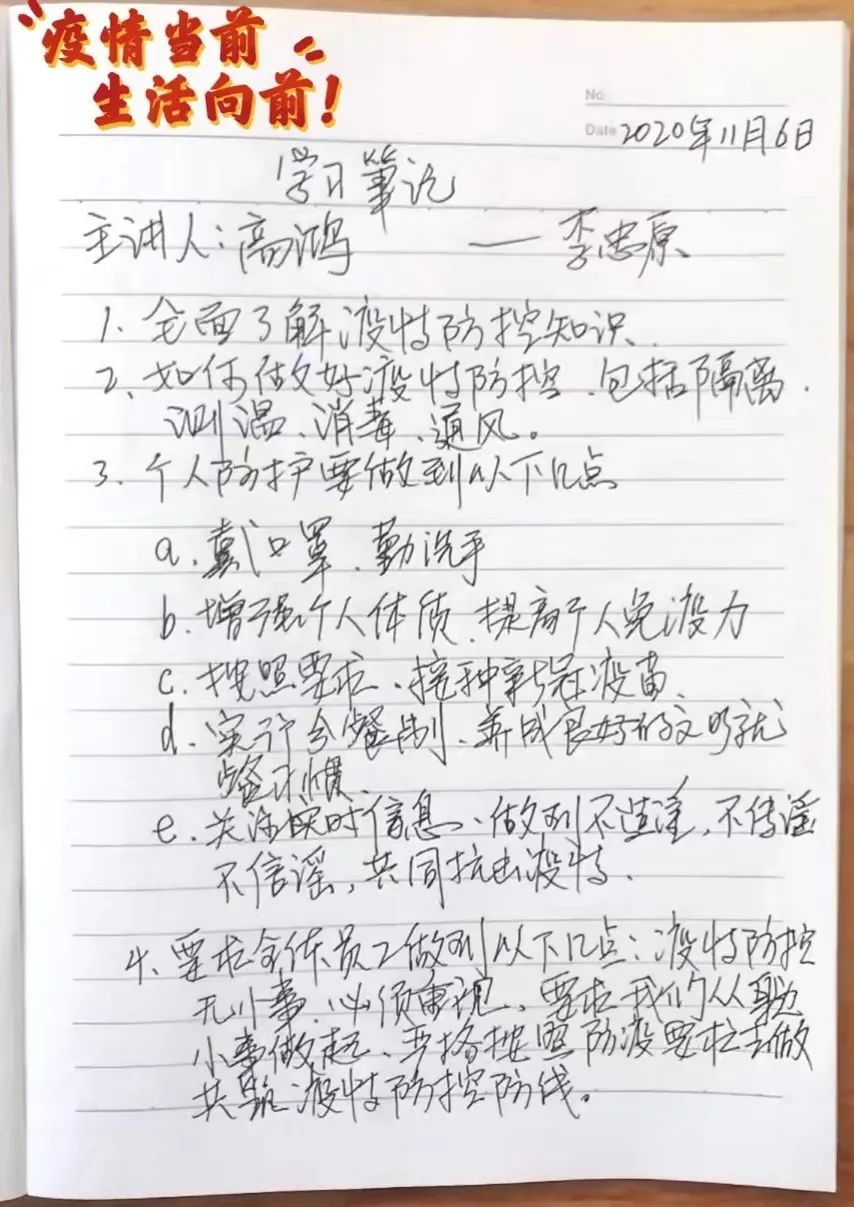 疫情当前
生活向前!
No
Date 2020年11月6日
学习笔记
主讲人:高鸿 — 李忠原
1、全面了解疫情防控知识、
2、如何做好疫情防控、包括隔离、
测温、消毒、通风。
3、个人防护要做到以下几点
a、戴口罩、勤洗手
b、增强个人体质、提高个人免疫力
c、按照要求、接种新冠疫苗、
d、实行分餐制、养成良好的文明就
餐习惯、
e、关注实时信息、做到不造谣,不传谣
不信谣,共同抗击疫情.
4、要求全体员工做到以下几点:疫情防控
无小事、必须重视、要求我们从身边
小事做起、严格按照防疫要求去做
共筑疫情防控防线。